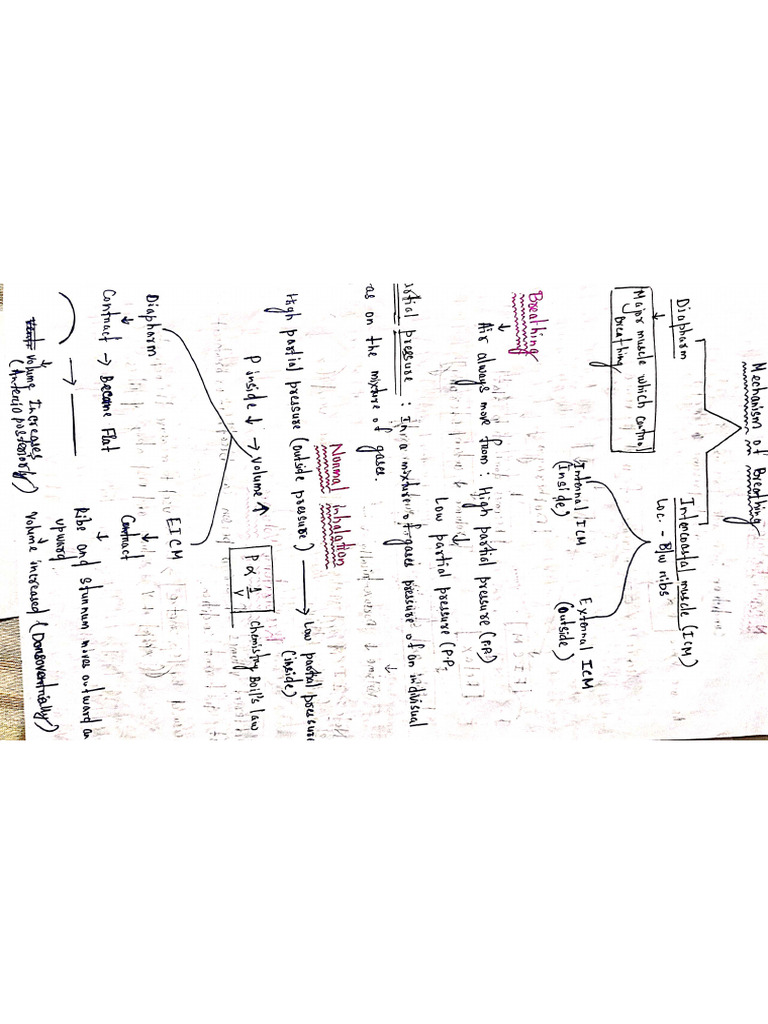 Mechanism of Breathing
Diapharm
Major muscle which control
Breathing
Intercoastal muscle (ICM)
Loc. - B/w ribs
Internal ICM
(Inside)
External ICM
(outside)
Breathing
Air always move from : High partial pressure (P.P.)
Low partial pressure (P.P.
rtial pressure : In a mixture of gases pressure of an indivisual
as on the mixture of gases.
Normal inhalation
High partial pressure (outside pressure) → Low partial pressure
(inside)
P inside ↓ → Volume ↑
P ∝ 1/V
chemistry Boil's law
Diapharm
Contract → Become Flat
Volume Increases
(Anterioposteriorly)
EICM
Contract
Ribs and Sturnnum moves outward an
upward
Volume increased (Dorsoventrially)